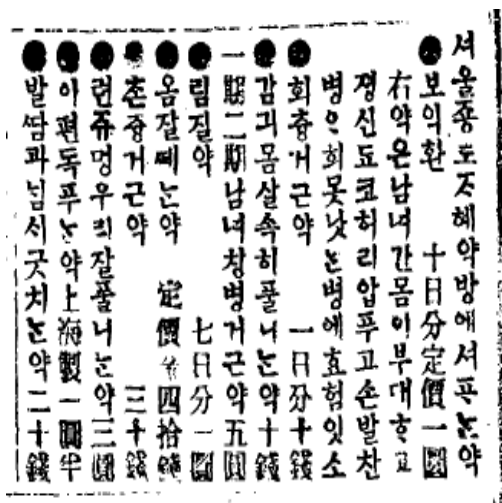 셔울죵도ᄌᆞ혜약방에셔ᄑᆞᄂᆞᆫ약
●보익환 十日分定價一圜
右약은남녀간몸이부대ᄒᆞ고
졍신됴코허리압푸고손발찬
병으희못낫는병에효험잇소
●회츙거근약 一日分十錢
●감긔몸살속히풀니ᄂᆞᆫ약十錢
一期二期남녀창병거근약五圜
●림질약 七日分一圜
●옴잘ᄯᅦᄂᆞᆫ약 定價 四拾錢
●촌츙거근약 三十錢
●련쥬멍우리잘풀니ᄂᆞᆫ약三圜
●아편독푸ᄂᆞᆫ약上海製一圜半
●발ᄯᅡᆷ과님ᄉᆡ굿치ᄂᆞᆫ약二十錢